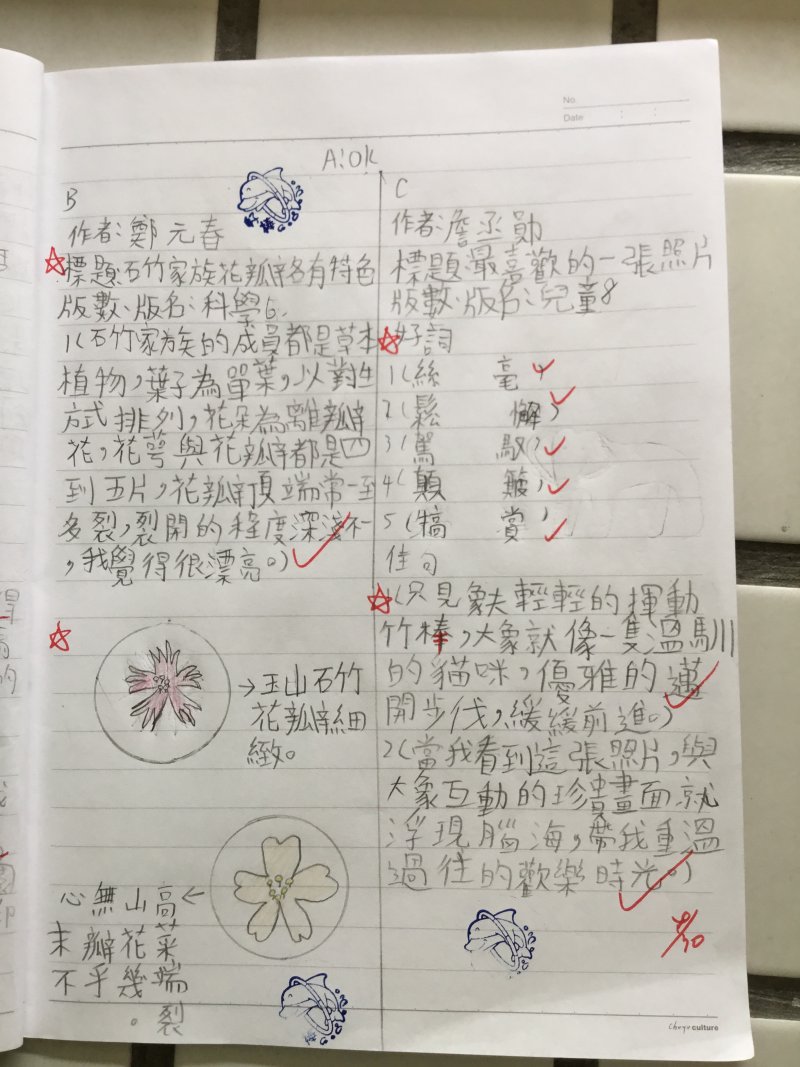 No.
Date : :
A:OK
B
作者:鄭元春
標題:石竹家族花瓣各有特色
版數、版名:科學6.
1(石竹家族的成員都是草本
植物,葉子為單葉,以對生
方式排列,花朵為離瓣
花,花萼與花瓣都是四
到五片,花瓣頂端常一到
多裂,裂開的程度深淺不一
,我覺得很漂亮。)
→玉山石竹
花瓣細
緻。
高山無心←
菜花瓣末
端幾乎不
裂。
C
作者:詹丞勛
標題:最喜歡的一張照片
版數、版名:兒童8
好詞
1(絲 毫)
2(鬆 懈)
3(駕 馭)
4(顛 簸)
5(犒 賞)
佳句
1(只見象夫輕輕的揮動
竹棒,大象就像一隻溫馴
的貓咪,優雅的邁
開步伐,緩緩前進。)
2(當我看到這張照片,與
大象互動的珍貴畫面就
浮現腦海,帶我重溫
過往的歡樂時光。)
culture